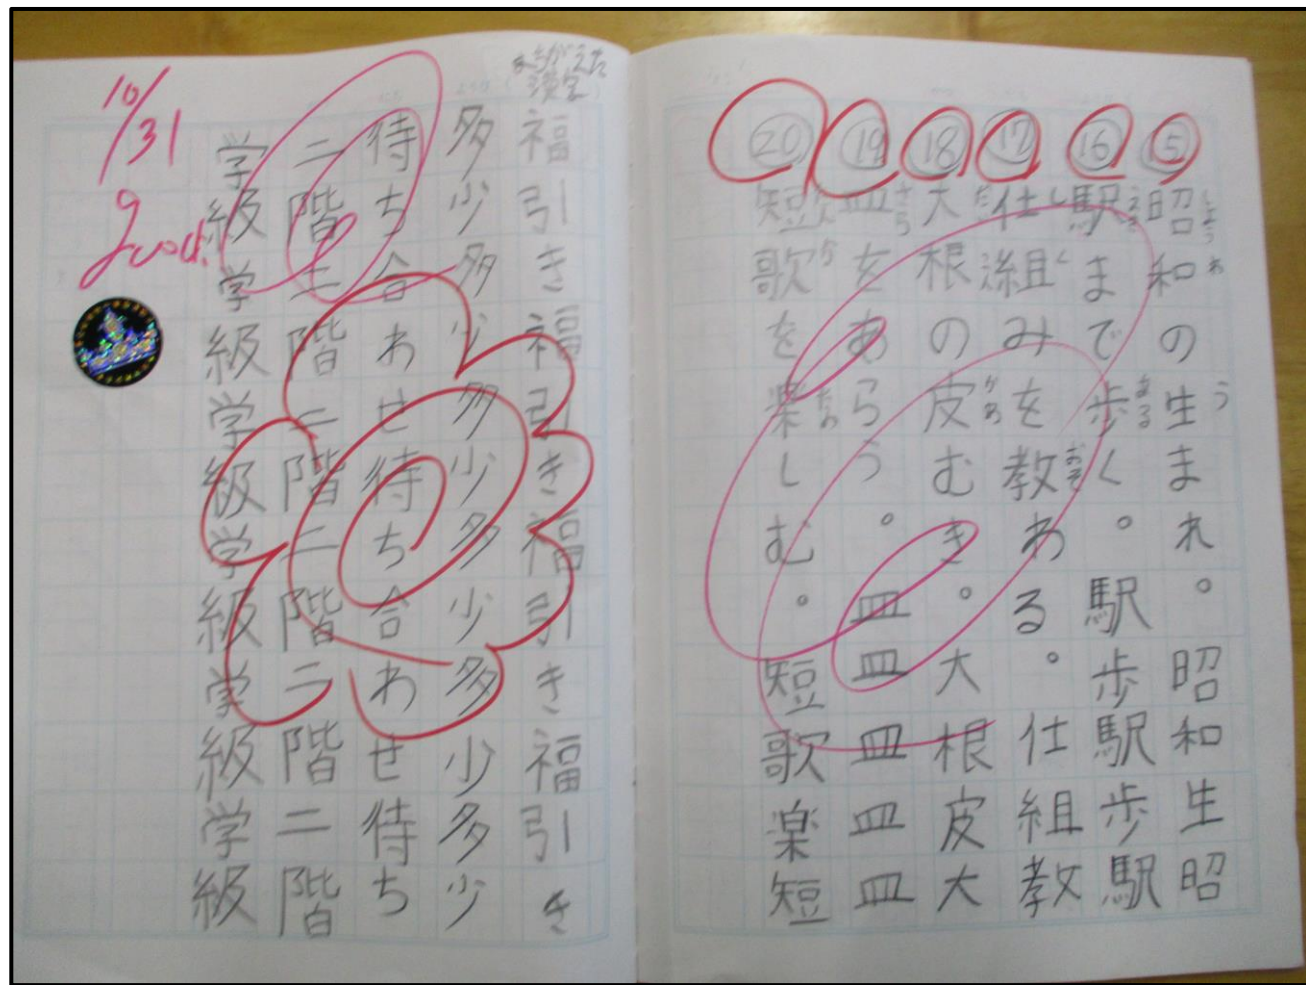 ⑤昭和の生まれ。昭和生昭
しょう わ う
⑯駅まで歩く。駅歩駅歩駅
えき ある
⑰仕組みを教わる。仕組教
し く おそ
⑱大根の皮むき。大根皮大
だい かわ
⑲皿をあらう。皿皿皿皿皿
さら
⑳短歌を楽しむ。短歌楽短
たん か たの
まちがえた
漢字
福引き福引き福引き福引き
多少多少多少多少多少多少
待ち合わせ待ち合わせ待ち
二階二階二階二階二階二階
学級学級学級学級学級学級
10/31
good.